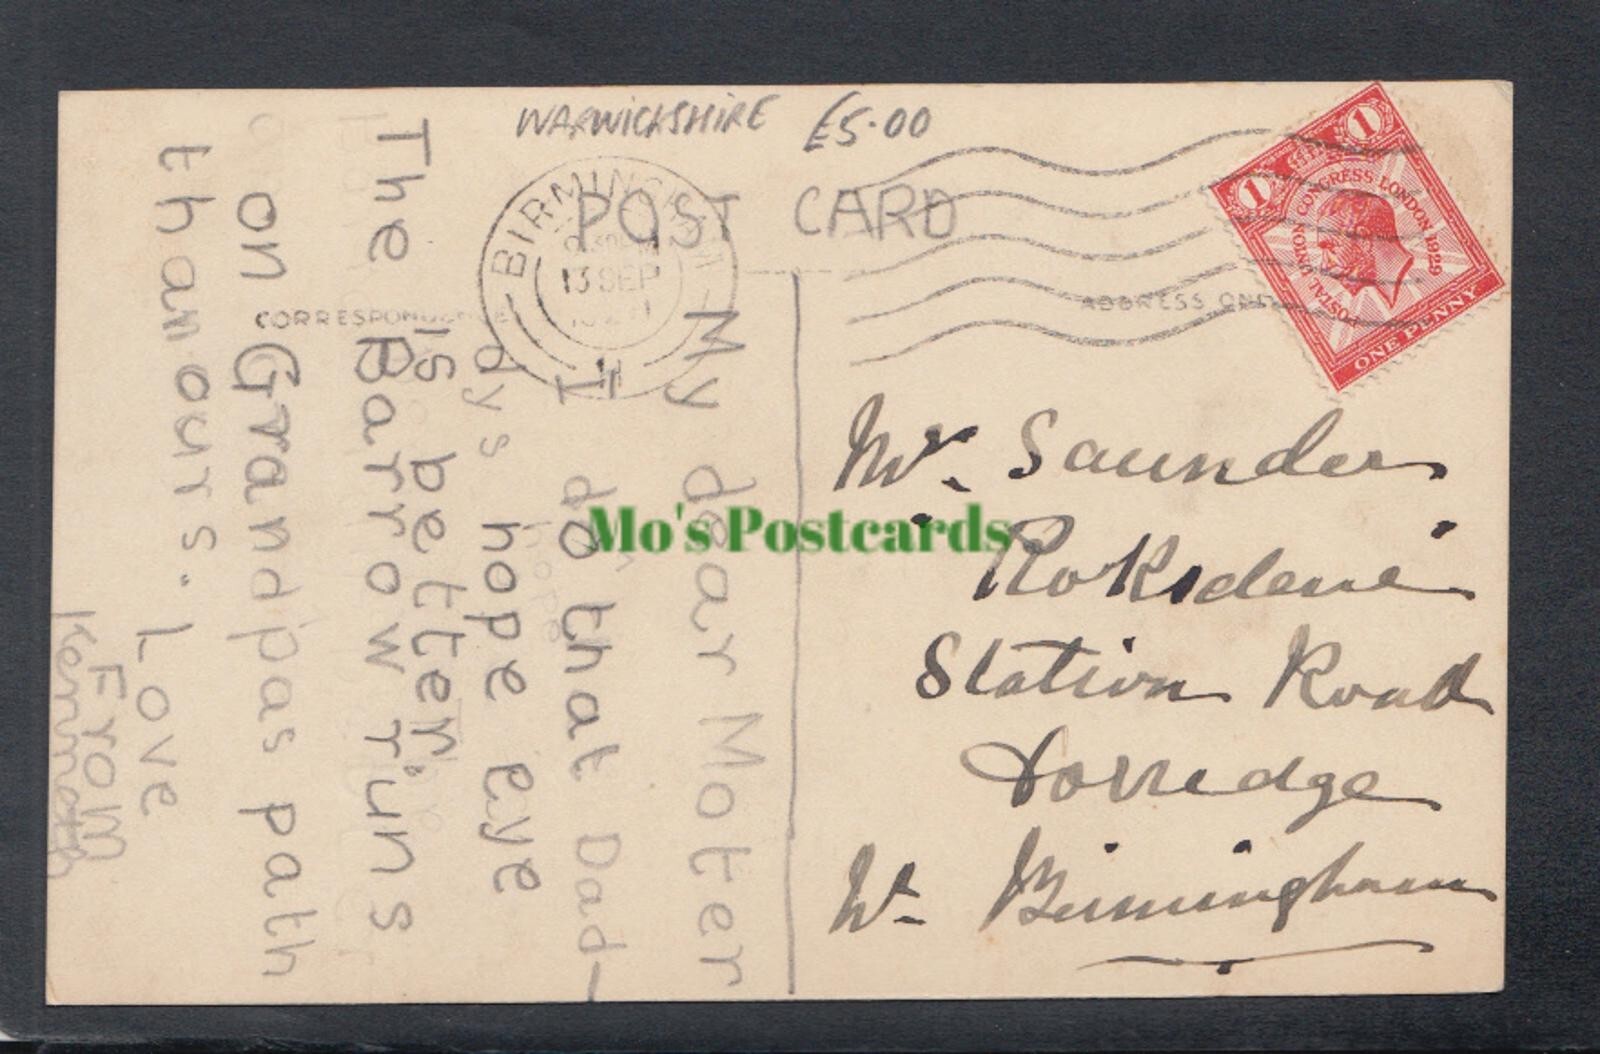 WARWICKSHIRE £5.00
POST CARD
CORRESPONDENCE
ADDRESS ONLY
BIRMINGHAM
9.30 PM
13 SEP
POSTAL UNION CONGRESS LONDON 1929
1
1
ONE PENNY
My dear Moter
I do that Dad-
dys hope eye
is better.
The Barrow runs
on Grandpas path
than ours.
Love
From
Kenneth
Mr. Saunders
Station Road
Dorridge
Nr. Birmingham
Mo's Postcards